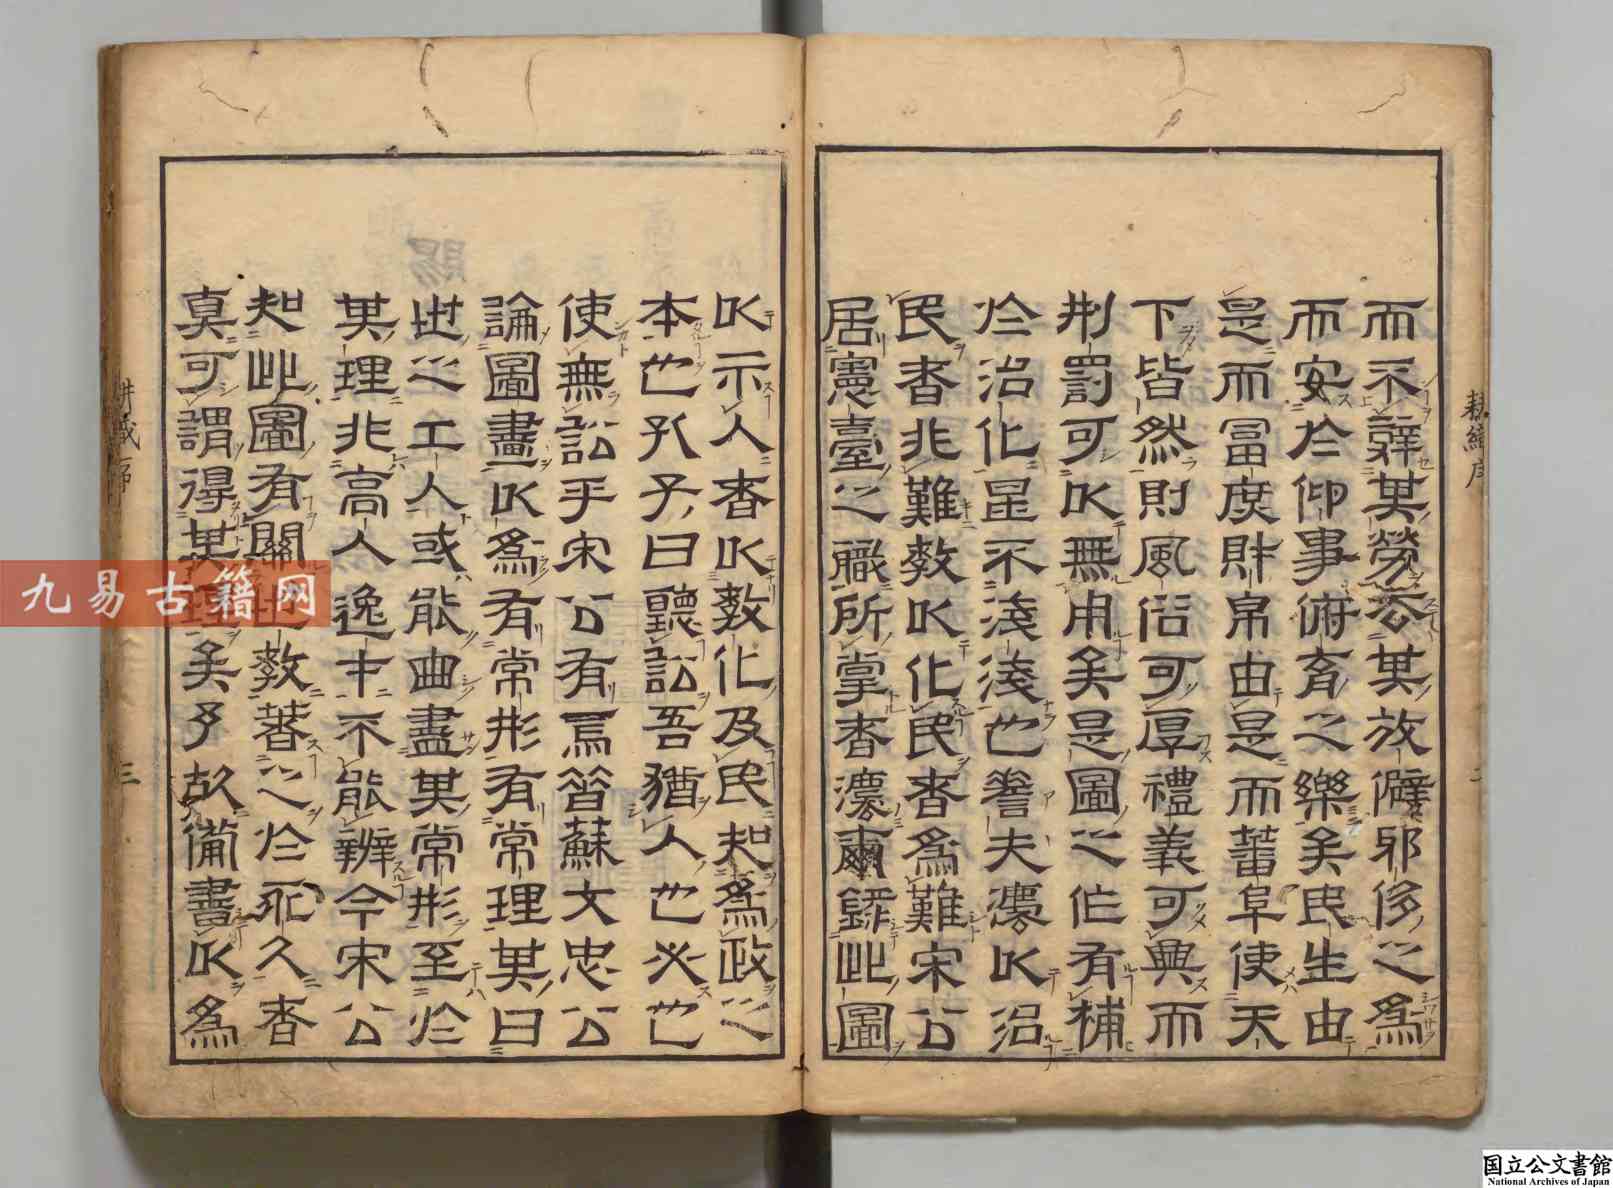 而不辭其勞忝其放僻邪侈之爲
而安於仰事俯育之樂矣民生由
是而冨庶財帛由是而蕃阜使天
下皆然則風俗可厚禮義可興而
刑罰可以無用矣是圖之作有補
於治化豈不淺淺也㢧夫瀍以沼
民者非難敎以化民者爲難宋公
居憲臺之職所掌者瀍爾鋟此圖
以示人者以敎化及民知爲政之
本也孔子曰聽訟吾猶人也必也
使無訟乎宋公有焉昔蘇文忠公
論圖畫以爲有常形有常理其曰
世之工人或能曲盡其常形至於
其理非高人逸才不能辨今宋公
知此圖有關世教著之於永久者
真可謂得其理矣予故備書以爲
耕織序
二
三
賜
九易古籍网
国立公文書館
National Archives of Japan